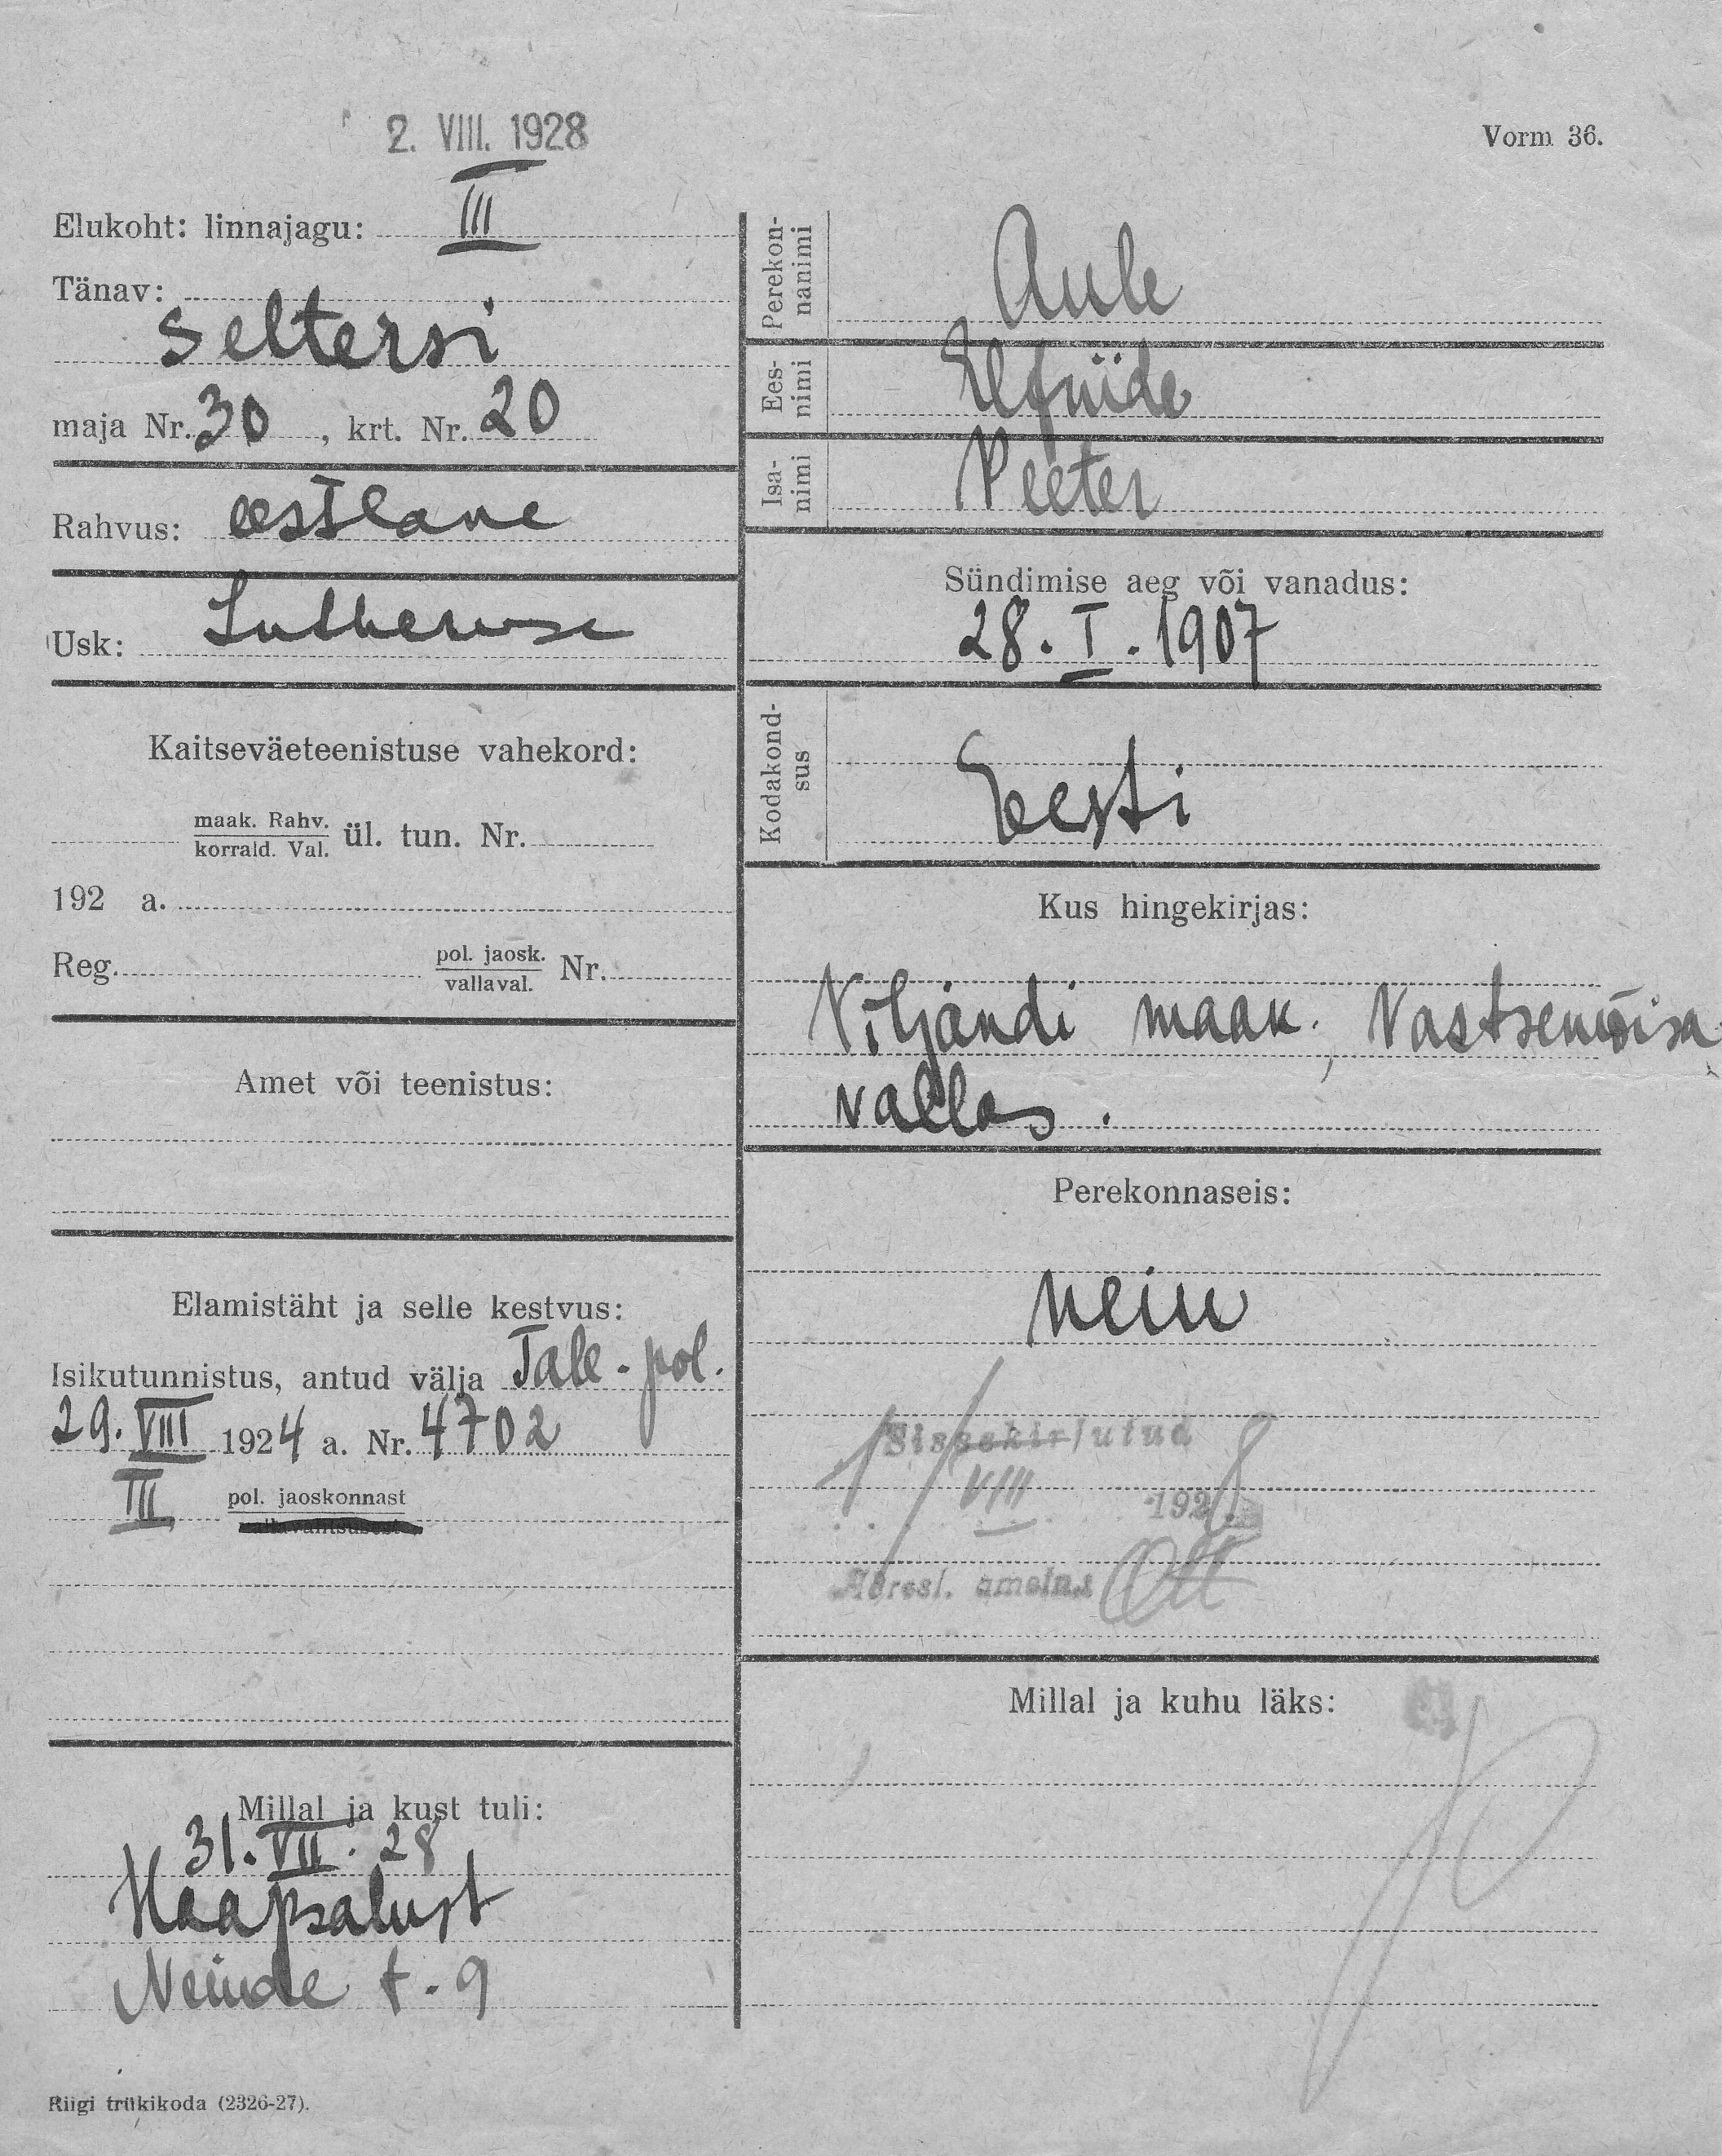 2. VIII. 1928
Vorm 36.
Elukoht: linnajagu: III
Tänav:
Seltersi
maja Nr. 30, krt. Nr. 20
Rahvus: eestlane
Usk: Lutheruse
Kaitseväeteenistuse vahekord:
maak. Rahv.
korrald. Val. ül. tun. Nr.
192 a.
Reg. pol. jaosk.
vallaval. Nr.
Amet või teenistus:
Elamistäht ja selle kestvus:
Isikutunnistus, antud välja Tall-pol.
29. VIII 1924 a. Nr. 4702
III pol. jaoskonnast
Millal ja kust tuli:
31. VII. 28
Haapsalust
Neiude t. 9
Riigi trükikoda (2326-27).
Perekon-
nanimi
Aule
Ees-
nimi
Elfriide
Isa-
nimi
Peeter
Sündimise aeg või vanadus:
28. I. 1907
Kodakond-
sus
Eesti
Kus hingekirjas:
Viljandi maak., Vastsemõisa
vallas.
Perekonnaseis:
neiu
Sissekirjutud
1/VIII 1928
Adressl. ametnik
Millal ja kuhu läks: